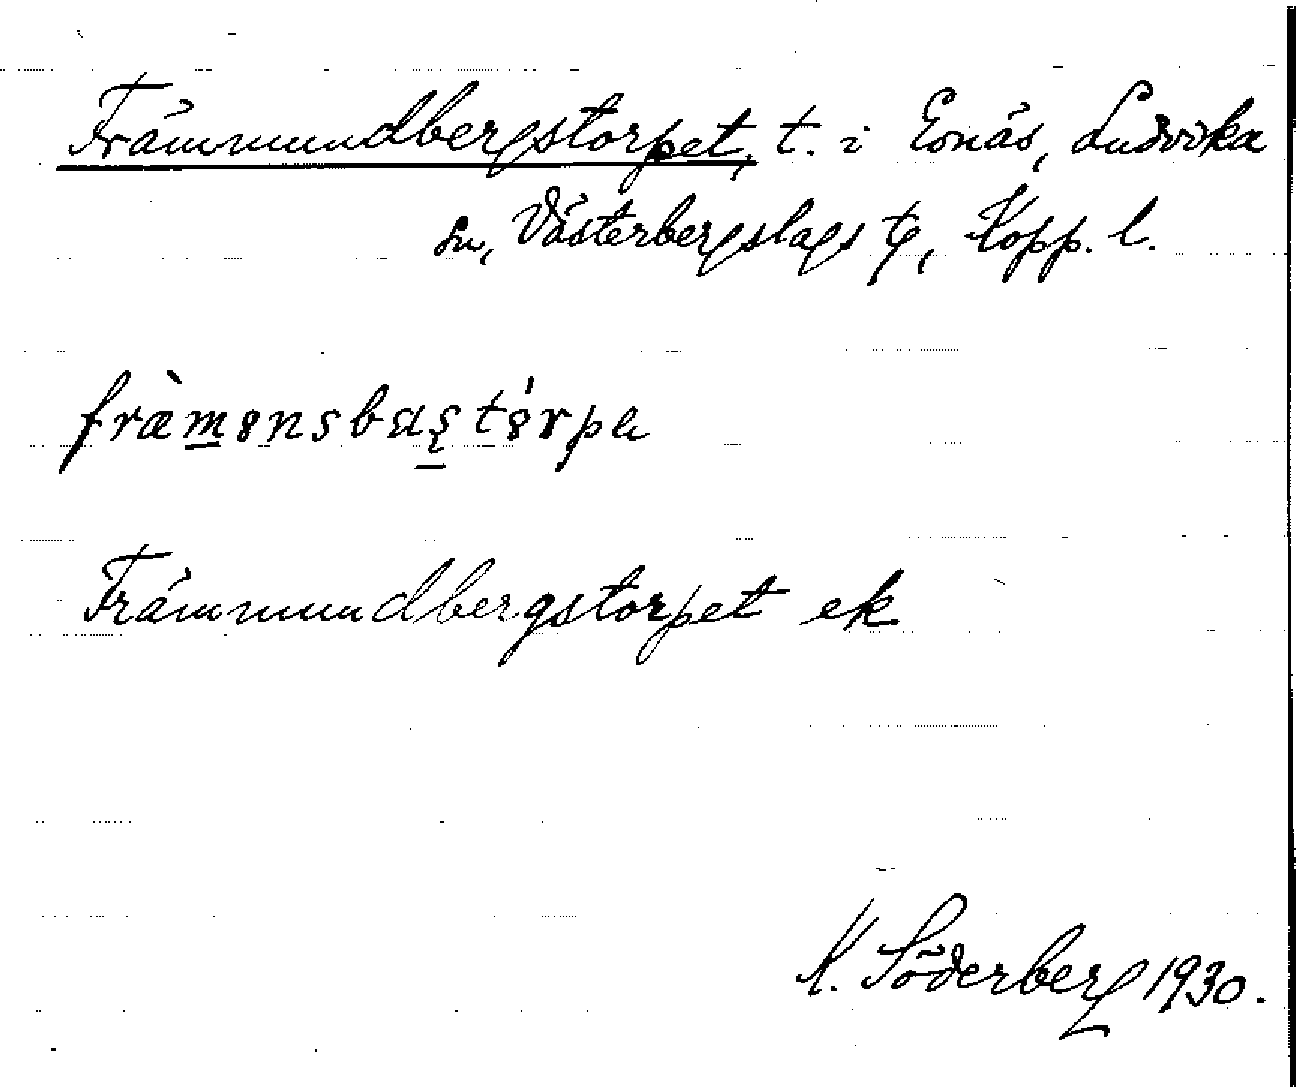 Främmundbergstorpet, t. i Esnäs, Ludvika
sn, Västerbergslags tg, Kopp. l.
Främmundbergstorpet ek
K. Söderberg 1930.